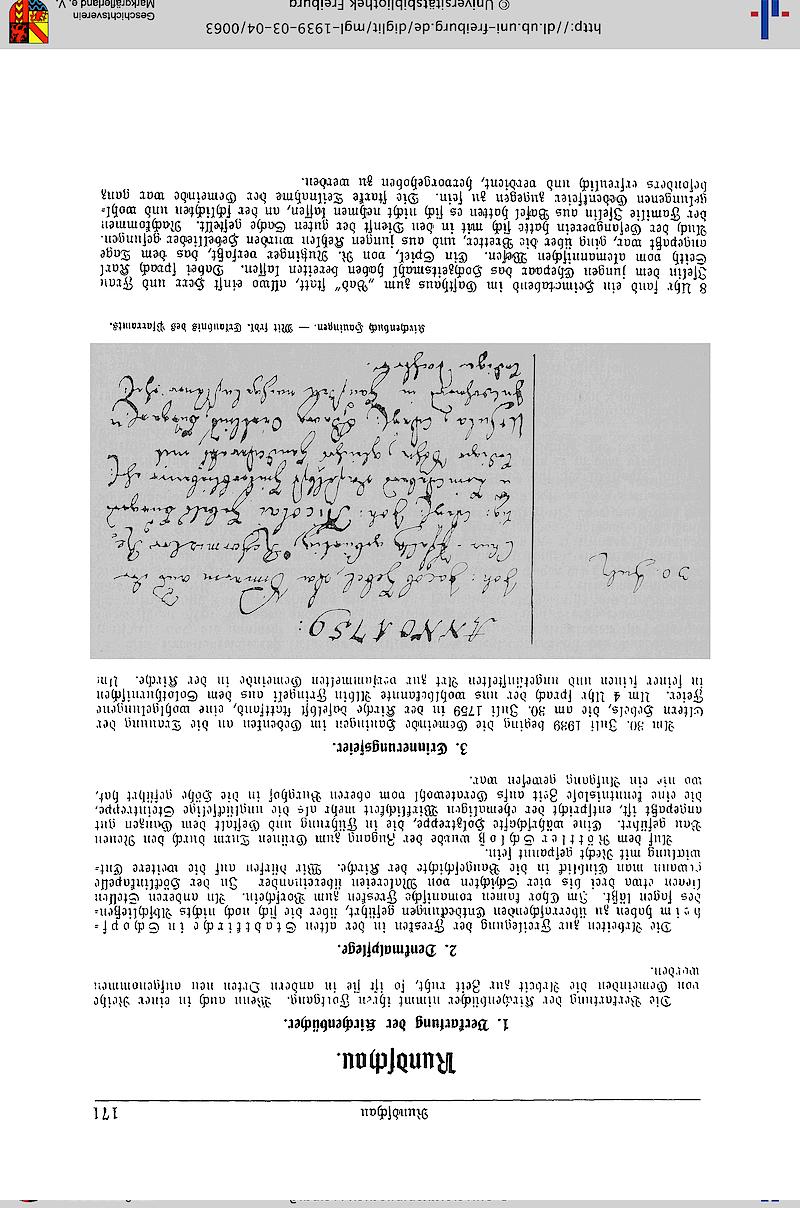 Rundschau
171
Rundschau.
1. Verkartung der Kirchenbücher.
Die Verkartung der Kirchenbücher nimmt ihren Fortgang. Wenn auch in einer Reihe
von Gemeinden die Arbeit zur Zeit ruht, so ist sie in andern Orten neu aufgenommen
worden.
2. Denkmalpflege.
Die Arbeiten zur Freilegung der Fresken in der alten Stadtkirche in Schopf-
heim haben zu überraschenden Entdeckungen geführt, über die sich noch nichts Abschließen-
des sagen läßt. Im Chor kamen romanische Fresken zum Vorschein. An anderen Stellen
liegen etwa drei bis vier Schichten von Malereien übereinander. In der Höcklinkapelle
gewann man Einblick in die Baugeschichte der Kirche. Wir dürfen auf die weitere Ent-
wicklung mit Recht gespannt sein.
Auf dem Röttler Schloß wurde der Zugang zum Grünen Turm durch den Neuen
Bau geführt. Eine währschafte Holztreppe, die in Führung und Gestalt dem Ganzen gut
angepaßt ist, entspricht der ehemaligen Wirklichkeit mehr als die unglückselige Steintreppe,
die eine kenntnislose Zeit aufs Geratewohl vom oberen Burghof in die Höhe geführt hat,
wo nie ein Aufgang gewesen war.
3. Erinnerungsfeier.
Am 30. Juli 1939 beging die Gemeinde Hauingen im Gedenken an die Trauung der
Eltern Hebels, die am 30. Juli 1759 in der Kirche daselbst stattfand, eine wohlgelungene
Feier. Um 4 Uhr sprach der uns wohlbekannte Albin Fringeli aus dem Solothurnischen
in seiner feinen und ungekünstelten Art zur versammelten Gemeinde in der Kirche. Um
ANNO 1759:
30. July
Joh: Jacob Hebel, von Simmern aus der
Chur-Pfaltz gebürtig, Reformirter Re-
lig: weyl: Joh: Nicolai Hebels Burgers
lediger Sohn,
Ursula,
Kirchenbuch Hauingen. — Mit frdl. Erlaubnis des Pfarramts.
8 Uhr fand ein Heimatabend im Gasthaus zum „Bad“ statt, allwo einst Herr und Frau
Iselin dem jungen Ehepaar das Hochzeitsmahl haben bereiten lassen. Dabei sprach Karl
Seith vom alemannischen Wesen. Ein Spiel, von R. Nutzinger verfaßt, das dem Tage
angepaßt war, ging über die Bretter, und aus jungen Kehlen wurden Hebellieder gesungen.
Auch der Gesangverein hatte sich mit in den Dienst der guten Sache gestellt. Nachkommen
der Familie Iselin aus Basel hatten es sich nicht nehmen lassen, an der schlichten und wohl-
gelungenen Gedenkfeier zugegen zu sein. Die starke Teilnahme der Gemeinde war ganz
besonders erfreulich und verdient, hervorgehoben zu werden.
http://dl.ub.uni-freiburg.de/diglit/mgl-1939-03-04/0063
© Universitätsbibliothek Freiburg
Geschichtsverein
Markgräflerland e. V.